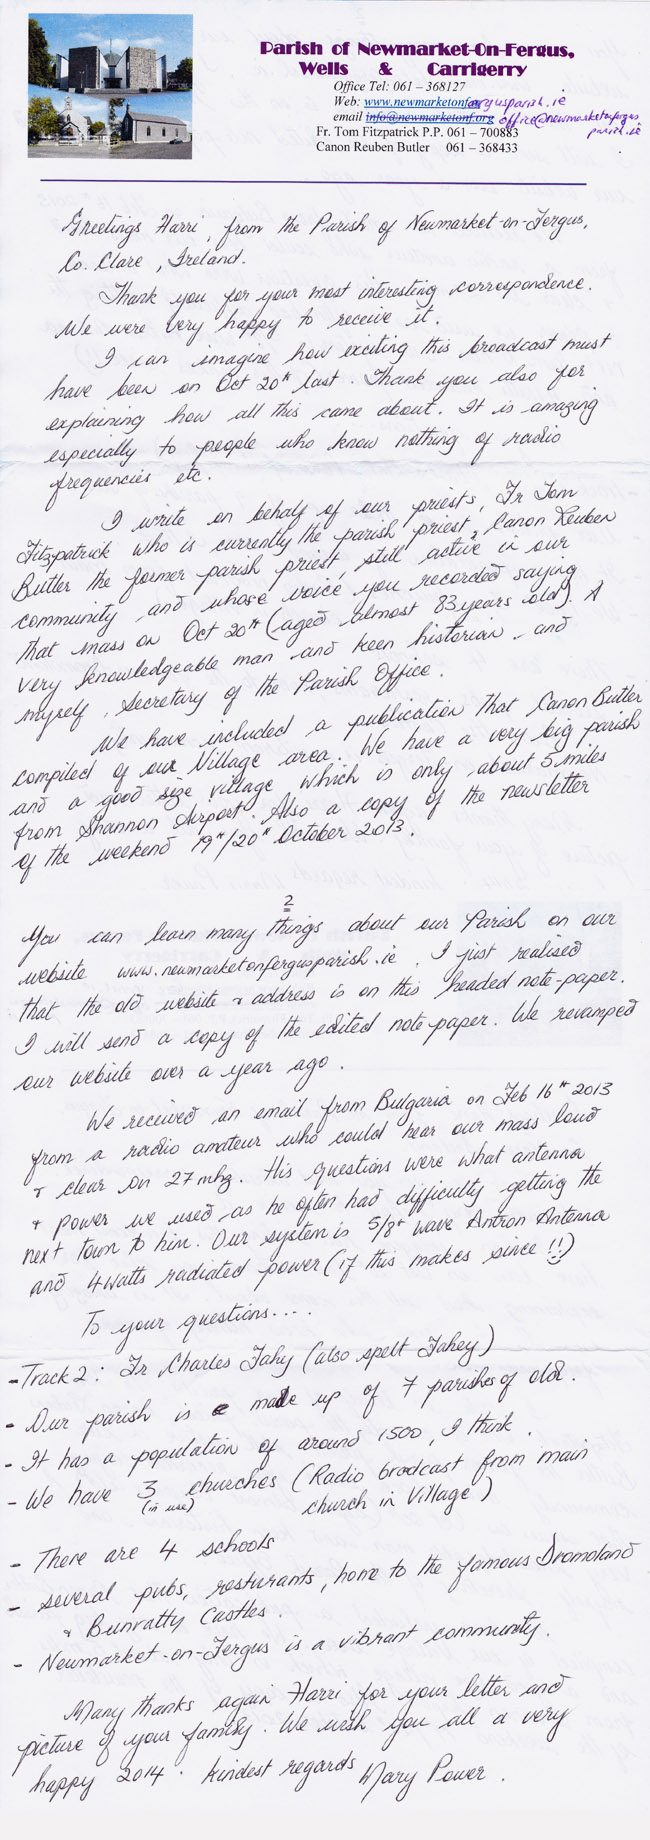 Parish of Newmarket-On-Fergus,
Wells & Carrigerry
Office Tel: 061 – 368127
Web: www.newmarketonfergusparish.ie
email info@newmarketonf.org office@newmarketonfergus
parish.ie
Fr. Tom Fitzpatrick P.P. 061 – 700883
Canon Reuben Butler 061 – 368433
Greetings Harri, from the Parish of Newmarket-on-Fergus,
Co. Clare, Ireland.
Thank you for your most interesting correspondence.
We were very happy to receive it.
I can imagine how exciting this broadcast must
have been on Oct 20th last. Thank you also for
explaining how all this came about. It is amazing
especially to people who know nothing of radio
frequencies etc.
I write on behalf of our priests, Fr Tom
Fitzpatrick who is currently the parish priest, Canon Reuben
Butler the former parish priest, still active in our
community and whose voice you recorded saying
that mass on Oct 20th (aged almost 83 years old). A
very knowledgeable man and keen historian, and
myself, Secretary of the Parish Office.
We have included a publication that Canon Butler
compiled of our Village area. We have a very big parish
and a good size village which is only about 5 miles
from Shannon Airport. Also a copy of the newsletter
of the weekend 19th/20th October 2013.
2
You can learn many things about our Parish on our
website www.newmarketonfergusparish.ie. I just realised
that the old website & address is on this headed note-paper.
I will send a copy of the edited note paper. We revamped
our website over a year ago.
We received an email from Bulgaria on Feb 16th 2013
from a radio amateur who could hear our mass loud
& clear on 27 mhz. His questions were what antenna
& power we used, as he often had difficulty getting the
next town to him. Our system is 5/8th wave Antron Antenna
and 4 watts radiated power (if this makes since !!)
To your questions....
- Track 2: Fr Charles Fahy (also spelt Fahey)
- Our parish is made up of 7 parishes of old.
- It has a population of around 1500, I think.
- We have 3 churches (Radio brodcast from main
(in use) church in Village)
- There are 4 schools
- several pubs, resturants, home to the famous Dromoland
& Bunratty Castles.
- Newmarket-on-Fergus is a vibrant community.
Many thanks again Harri for your letter and
picture of your family. We wish you all a very
happy 2014. kindest regards Mary Power.